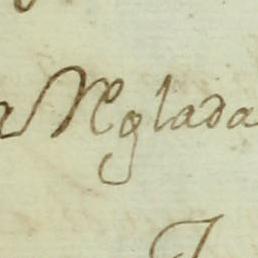 a Neglada